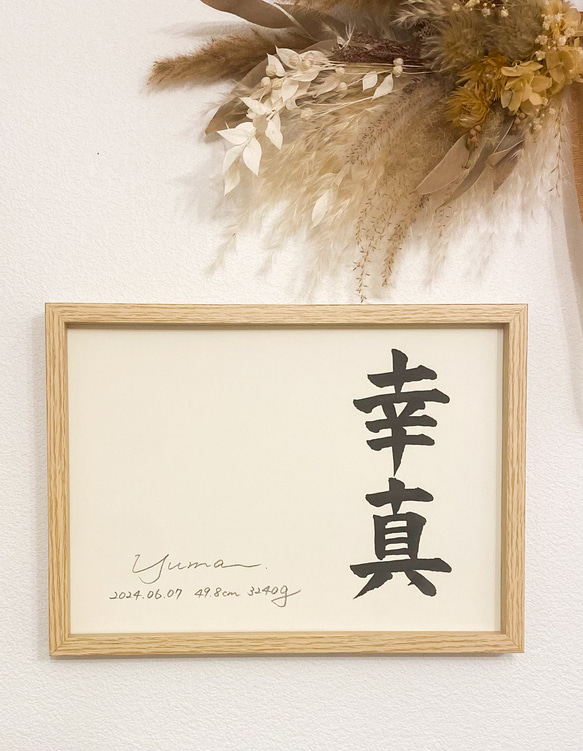 幸真
Yuma.
2024.06.07 49.8cm 3240g